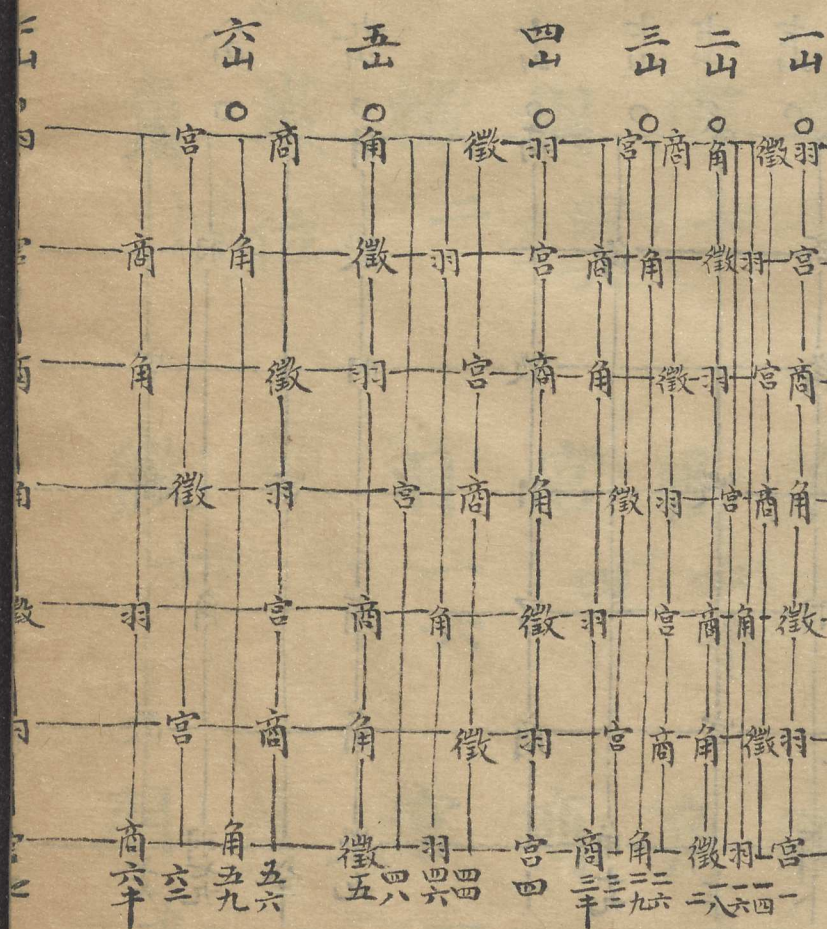 一山 二山 三山 四山 五山 六山
羽 徵 角 商 宮 羽 徵 角 商 宮
宮 羽 徵 角 商 宮 羽 徵 角 商
商 宮 羽 徵 角 商 宮 羽 徵 角
角 商 宮 羽 徵 角 商 宮 羽 徵
徵 角 商 宮 羽 徵 角 商 宮 羽
羽 徵 角 商 宮 羽 徵 角 商 宮
宮 羽 徵 角 商 宮 羽 徵 角 商
一 一四 一六 一八 二 二六 二九 三二 三半 四 四四 四六 四八 五 五六 五九 六二 六半